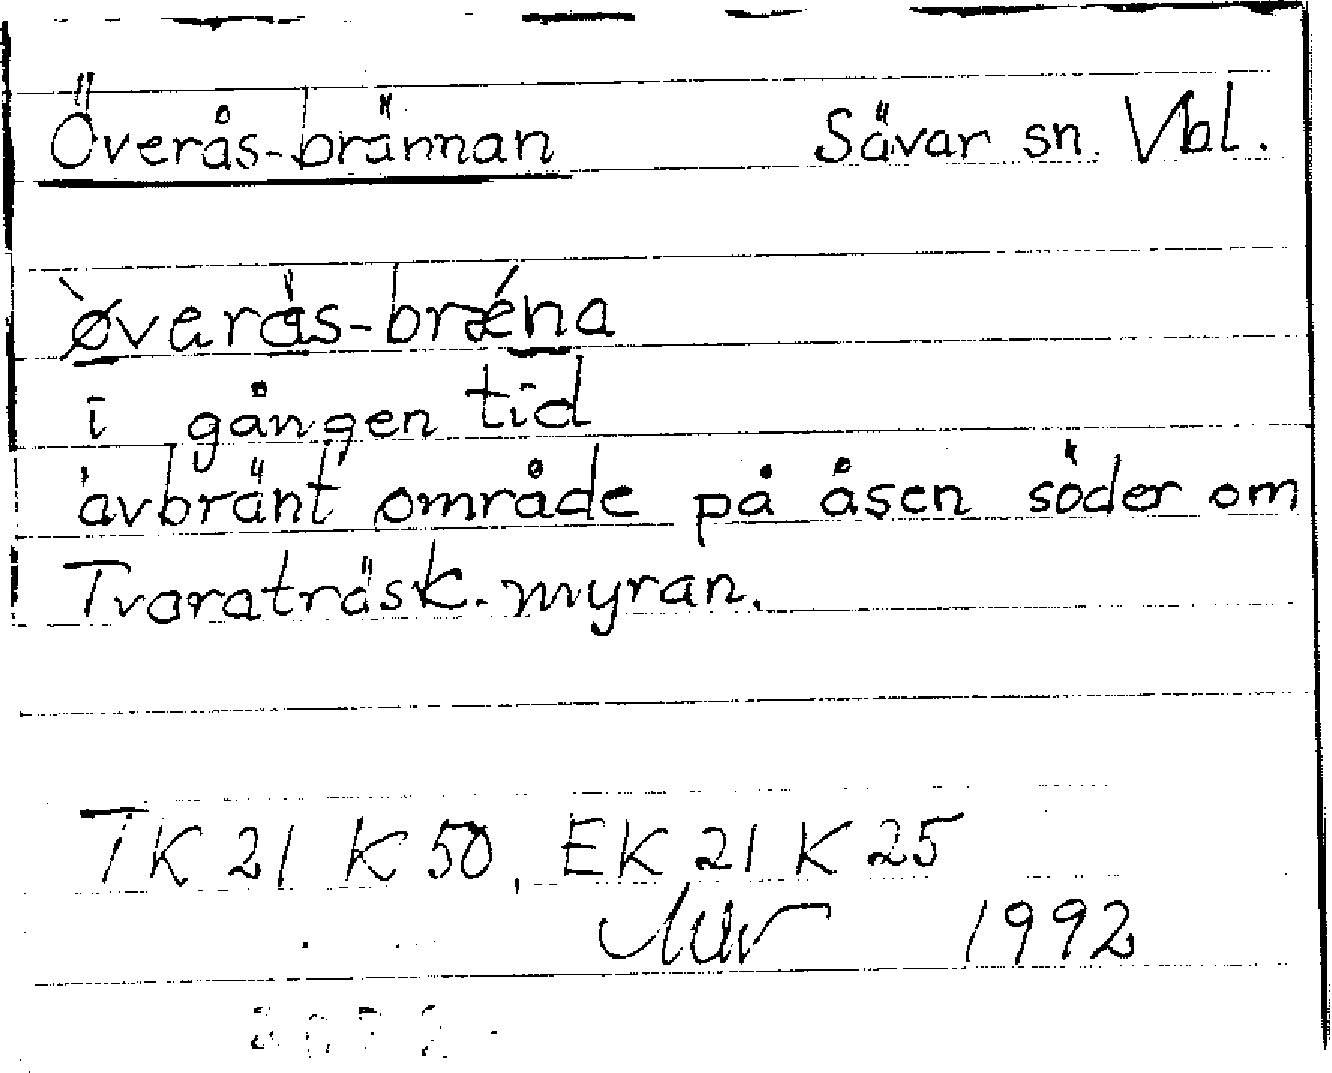 Överås-brännan Sävar sn. Vbl.
òverás-brǽna
i gången tid
avbränt område på åsen söder om
Tvaraträsk-myran.
TK 21 K 50, EK 21 K 25
1992